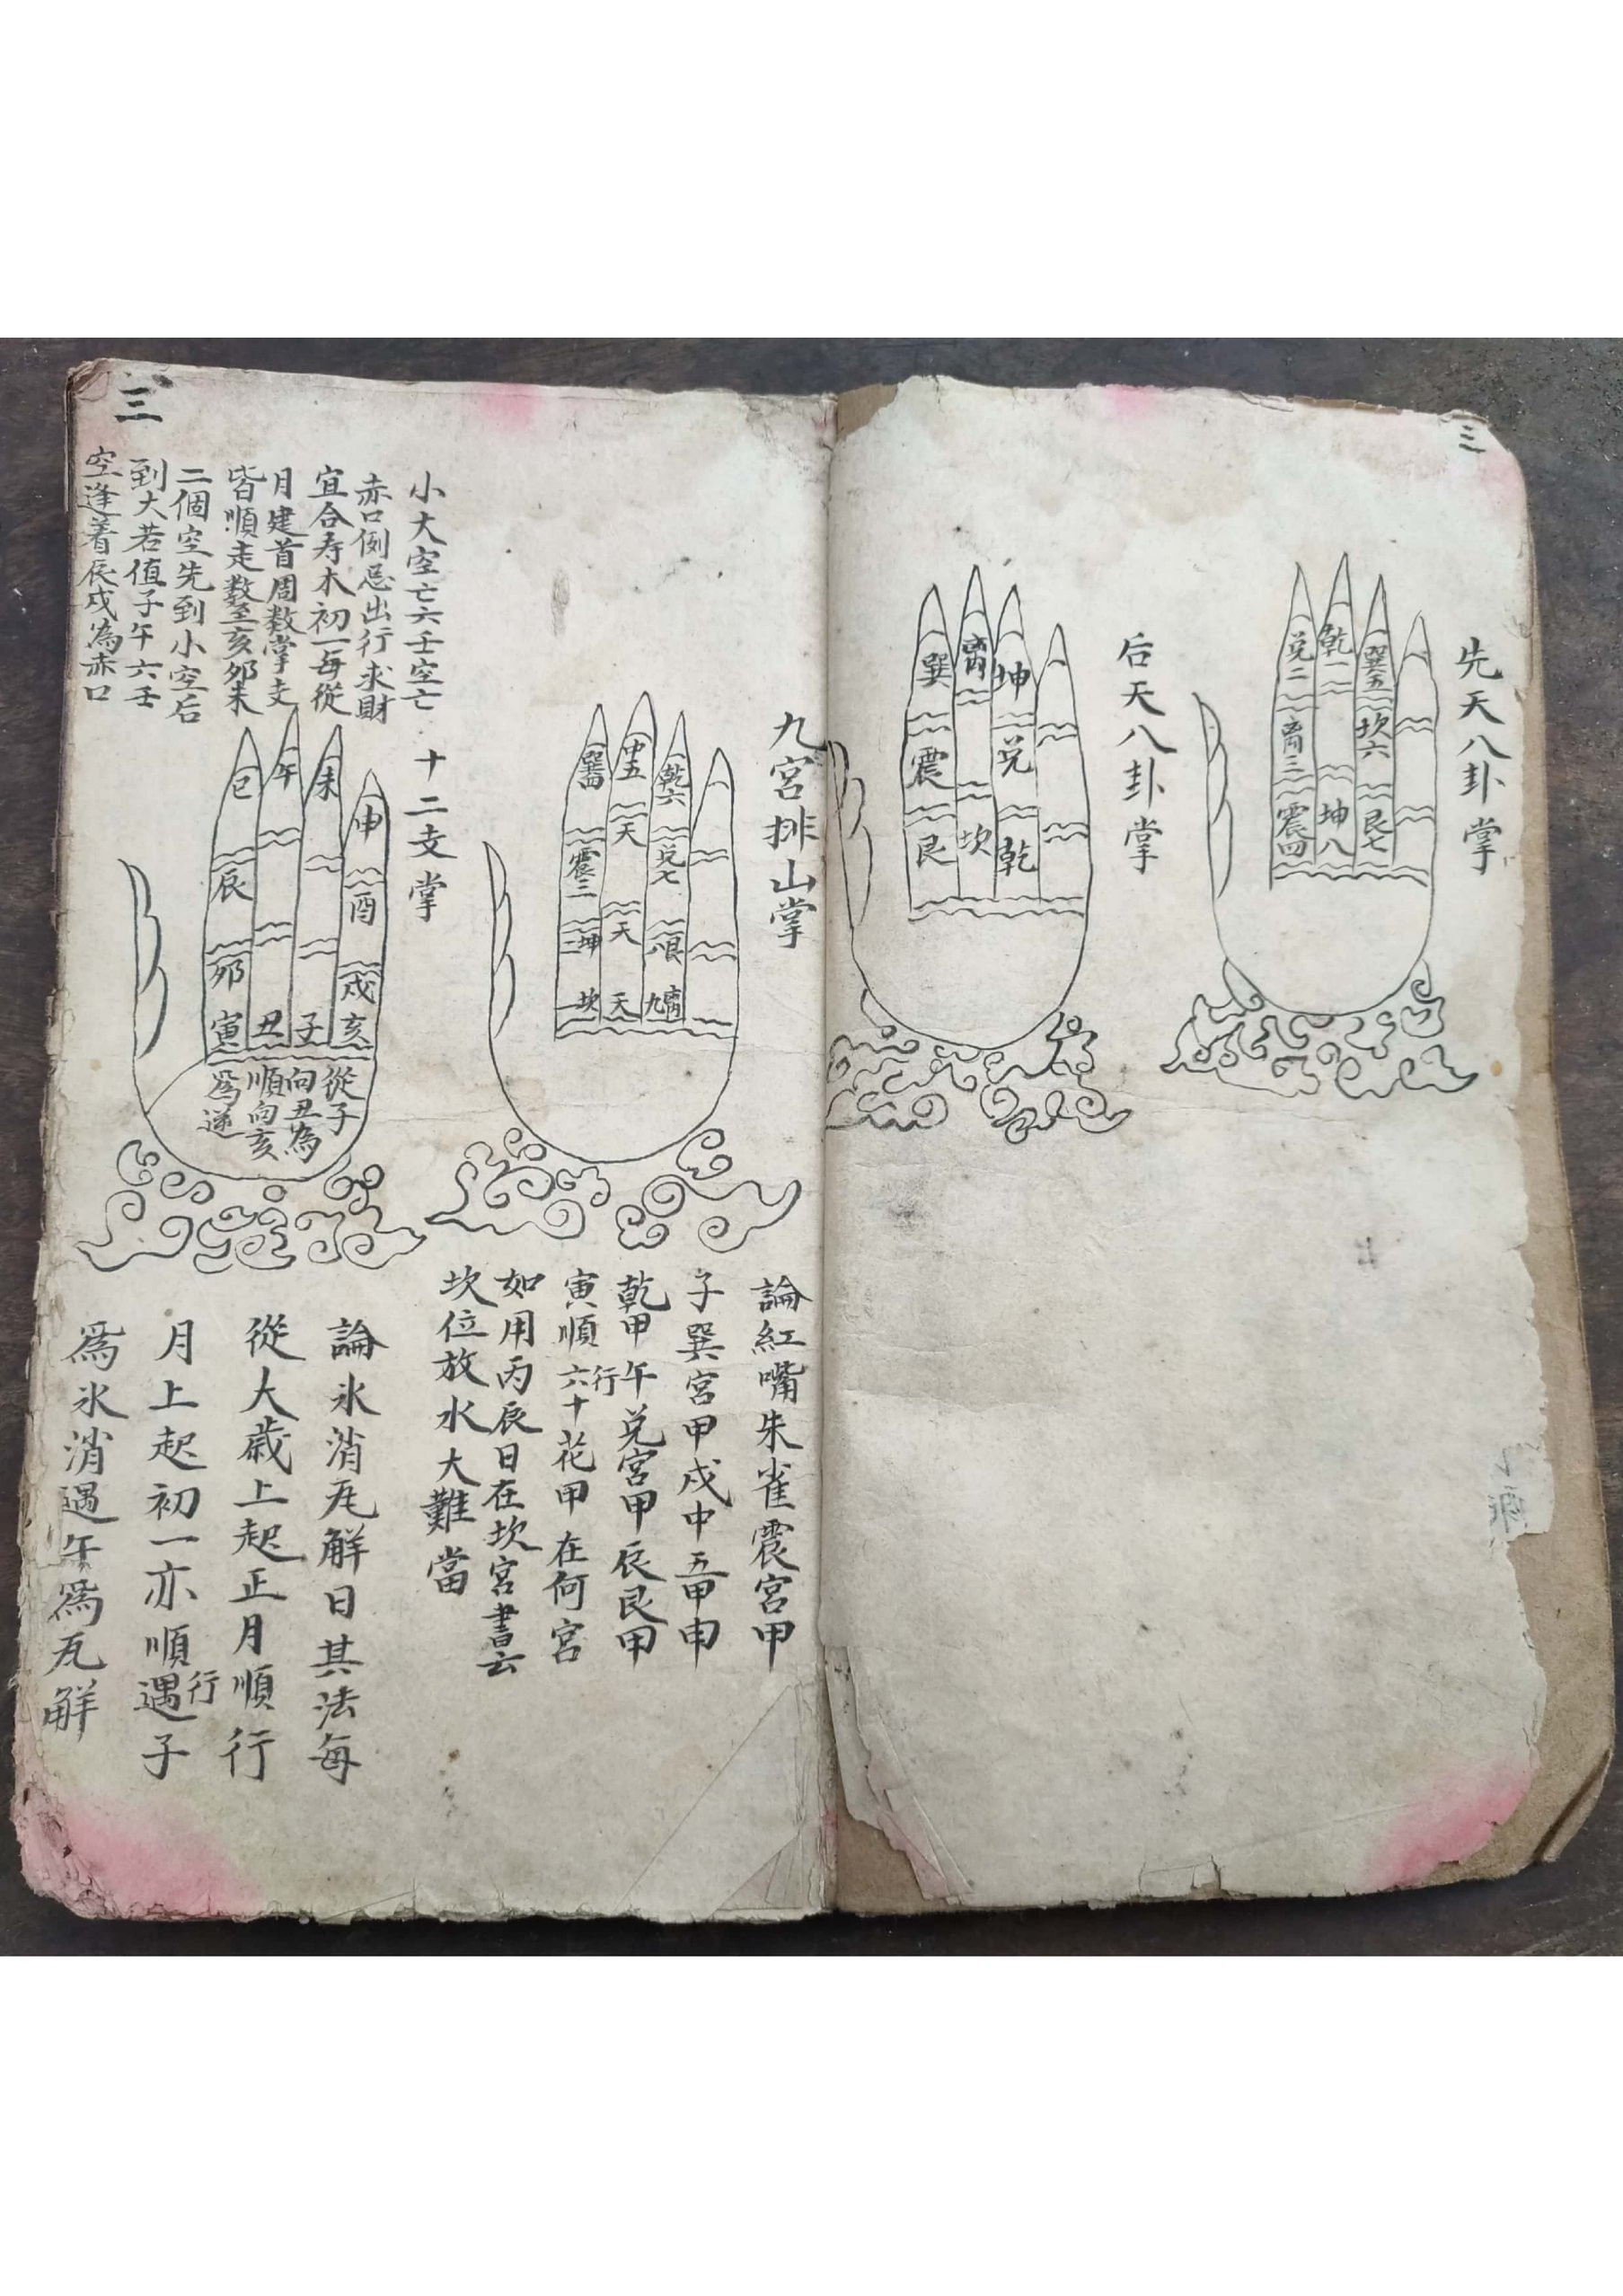 三
先天八卦掌
兑二
乾一
巽五
離三
坎六
震四
坤八
艮七
后天八卦掌
巽
離
坤
震
兑
艮
坎
乾
三
九宮排山掌
巽四
中五
乾六
震三
天
兑七
坤二
天
艮八
坎一
天
離九
論紅嘴朱雀震宮甲
子巽宮甲戌中五甲申
乾甲午兑宮甲辰艮甲
寅順行六十花甲在何宮
如用丙辰日在坎宮書云
坎位放水大難當
小大空亡六壬空亡
赤口例忌出行求財
宜合寿木初一每從
月建首周数掌支
皆順走数至亥夘未
二個空先到小空后
到大若值子午六壬
空逢着辰戌為赤口
十二支掌
巳
午
未
申
辰
酉
夘
戌
寅
丑
子
亥
從子
向丑為
順向亥
爲逆
論氷消瓦解日其法每
從大歲上起正月順行
月上起初一亦順行遇子
爲氷消遇午爲瓦解